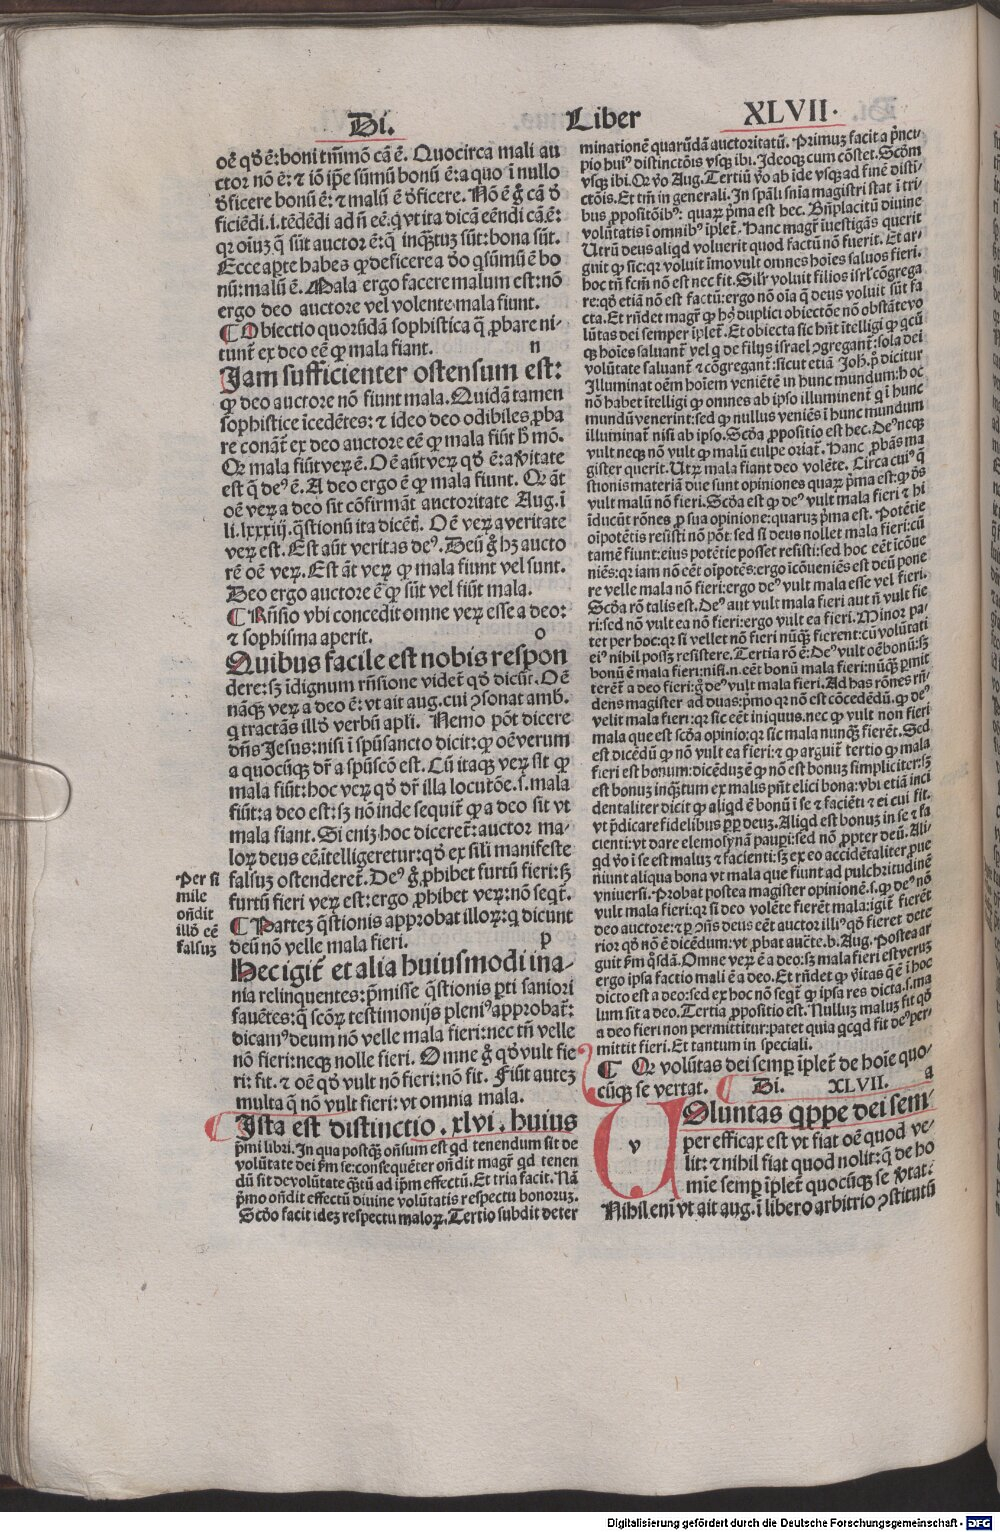 Di. Liber XLVII.
oē qđ ē: boni tm̄mō cā ē. Quocirca mali au
ctor nō ē: ⁊ iō ip̄e sūmū bonū ē: a quo ī nullo
đficere bonū ē: ⁊ malū ē đficere. Nō ē g̊ cā đ
ficiēdi .i. tēdēdi ad ñ eē: q̇ vt ita dicā eēndi cā ē:
qꝛ oīuꝫ q̄ sūt auctor ē: q̄ inq̄ꝫtuꝫ sūt: bona sūt.
Ecce aꝑte habes ꝙ deficere a đo q̇ sūmū ē bo
nū: malū ē. Mala ergo facere malum est: nō
ergo deo auctore vel volente mala fiunt.
¶ Obiectio quorūdā sophistica q̄ ꝓbare ni-
tunt ex deo eē ꝙ mala fiant. n
Jam sufficienter ostensum est:
ꝙ deo auctore nō fiunt mala. Quidā tamen
sophistice īcedētes: ⁊ ideo deo odibiles ꝓba
re conāt̄ ex deo auctore eē ꝙ mala fiūt h̄ mō.
Qꝛ mala fiūt veꝝ ē. Oē aūt veꝝ qđ ē: a v̄itate
est q̄ deꝰ ē. A deo ergo ē ꝙ mala fiunt. Qꝛ āt
oē veꝝ a deo sit cōfirmāt auctoritate Aug. ī
li. lxxxiij. q̄stionū ita dicētꝭ. Oē veꝝ a veritate
veꝝ est. Est aūt veritas deꝰ. Deū g̊ hꝫ aucto
rē oē veꝝ. Est āt veꝝ ꝙ mala fiunt vel sunt.
Deo ergo auctore ē ꝙ sūt vel fiūt mala.
¶ Rn̄sio vbi concedit omne veꝝ esse a deo:
⁊ sophisma aperit. o
Quibus facile est nobis respon
dere: sꝫ īdignum rn̄sione videt̄ qđ dicūt. Oē
nāqꝫ veꝝ a deo ē: vt ait aug. cui ↄsonat amb.
q̇ tractās illđ verbū apli. Nemo pōt dicere
dn̄s Jesus: nisi ī spūsancto dicit: ꝙ oē verum
a quocūqꝫ dr̄ a spūscō est. Cū itaqꝫ veꝝ sit ꝙ
mala fiūt: hoc veꝝ qđ dr̄ illa locutōe .s. mala
fiūt: a deo est: sꝫ nō inde sequit̄ ꝙ a deo sit vt
mala fiant. Si eniꝫ hoc diceret̄: auctor ma-
loꝝ deus eē ītelligeretur: qđ ex sili manifeste
falsuꝫ ostenderet̄. Deꝰ g̊ ꝓhibet furtū fieri: sꝫ
furtū fieri veꝝ est: ergo ꝓhibet veꝝ: nō seqt̄.
¶ Parteꝫ q̄stionis approbat illoꝝ: q̇ dicunt
deū nō velle mala fieri. p
Per si
mile
on̄dit
illđ eē
falsuꝫ
Hec igit̄ et alia huiusmodi ina-
nia relinquentes: p̄misse q̄stionis ꝑti saniori
fauētes: q̄ scōꝝ testimonijs pleniꝰ approbat̄:
dicamꝰ deum nō velle mala fieri: nec tn̄ velle
nō fieri: neqꝫ nolle fieri. Omne g̊ qđ vult fie
ri: fit. ⁊ oē qđ vult nō fieri: nō fit. Fiūt auteꝫ
multa q̄ nō vult fieri: vt omnia mala.
¶ Ista est distinctio. xlvi. huius
p̄mi libri. In qua postqꝫ on̄sum est qd tenendum sit de
volūtate dei p̄m se: consequēter on̄dit magr̄ qd tenen
dū sit de volūtate q̄ꝫtū ad ip̄m effectū. Et tria facit. Nā
p̄mo on̄dit effectū diuine volūtatis respectu bonoruꝫ.
Scđo facit ideꝫ respectu maloꝝ. Tertio subdit deter
minationē quarūdā auctoritatū. Primuꝫ facit a p̄nci-
pio huiꝰ distinctōis vsqꝫ ibi. Ideoqꝫ cum cōstet. Scđm
vsqꝫ ibi. Qꝛ v̄o Aug. Tertiū v̄o ab īde vsqꝫ ad finē disti-
ctōis. Et tm̄ in generali. In spāli snīa magistri stat ī tri
bus ꝓpositōibꝰ: quaꝝ p̄ma est hec. Bn̄placitū diuine
volūtatis ī omnibꝰ īplet̄. Hanc magr̄ īuestigās querit
Utrū deus aliqd voluerit quod factū nō fuerit. Et ar-
guit ꝙ sic: qꝛ voluit īmo vult omnes hoīes saluos fieri.
hoc tn̄ fcm̄ nō est nec fit. Silr̄ voluit filios isrl̄ cōgrega
re: qđ etiā nō est factū: ergo nō oīa q̄ deus voluit sūt fa
cta. Et rn̄det magr̄ ꝙ hꝰ duplici obiectōe nō obstāte vo
lūtas dei semper īplet̄. Et obiecta sic hn̄t ītelligi ꝙ qcū
qꝫ hoīes saluant̄ vel q̇ de filijs israel ↄgregant̄: sola dei
volūtate saluant̄ ⁊ cōgregant̄: sicut etiā Joh. p̄ dicitur
Illuminat oēm hoīem veniētē in hunc mundum: hoc
nō habet ītelligi ꝙ omnes ab ipso illuminent̄ q̇ ī hunc
mundū venerint: sed ꝙ nullus veniēs ī hunc mundum
illuminat̄ nisi ab ipso. Scđa ꝓpositio est hec. Deꝰ neqꝫ
vult neqꝫ nō vult ꝙ malū culpe oriat̄. Hanc ꝓbās ma
gister querit. Utꝝ mala fiant deo volēte. Circa cuiꝰ q̄
stionis materiā due sunt opiniones quaꝝ p̄ma est: ꝙ đs
vult malū nō fieri. Scđa est ꝙ deꝰ vult mala fieri ⁊ hi
īducūt rōnes ꝓ sua opinione: quaruꝫ p̄ma est. Potētie
oīpotētis resisti nō pōt: sed si deus nollet mala fieri: cū
tamē fiunt: eius potētie posset resisti: sed hoc eēt īcōue
niēs: qꝛ iam nō eēt oīpotēs: ergo īcōueniēs est deū pone
re velle mala nō fieri: ergo deꝰ vult mala esse vel fieri.
Scđa rō talis est. Deꝰ aut vult mala fieri aut ñ vult fie
ri: sed nō vult ea nō fieri: ergo vult ea fieri. Minor pa-
tet per hoc: qꝛ si vellet nō fieri nūqꝫ fierent: cū volūtati
eiꝰ nihil possꝫ resistere. Tertia rō ē: Deꝰ vult oē bonū: sꝫ
bonū ē mala fieri: nisi .n. eēt bonū mala fieri: nūqꝫ ꝑmit
teret̄ a deo fieri: g̊ deꝰ vult mala fieri. Ad has rōnes rn̄-
dens magister ad duas: p̄mo qꝛ nō est cōcedēdū. ꝙ deꝰ
velit mala fieri: qꝛ sic eēt iniquus. nec ꝙ vult non fieri
mala que est scđa opinio: qꝛ sic mala nunqꝫ fierēt. Sed
est dicēdū ꝙ nō vult ea fieri: ⁊ ꝙ arguit̄ tertio ꝙ mala
fieri est bonum: dicēduꝫ ē ꝙ nō est bonuꝫ simpliciter: sꝫ
est bonuꝫ inq̄ꝫtum ex malis pn̄t elici bona: vbi etiā inci
dentaliter dicit ꝙ aliqd ē bonū ī se ⁊ faciēti ⁊ ei cui fit.
vt p̄dicare fidelibus ꝓꝑ deuꝫ. Aliqd est bonuꝫ in se ⁊ fa
cienti: vt dare elemosynā pauꝑi: sed nō ꝓpter deū. Ali-
qd v̄o ī se est maluꝫ ⁊ facienti: sꝫ ex eo accidētaliter ꝓue
niunt aliqua bona vt mala que fiunt ad pulchritudinē
vniuersi. Probat postea magister opinionē .s. ꝙ deꝰ nō
vult mala fieri: qꝛ si deo volēte fierēt mala: igit̄ fierēt
deo auctore: ⁊ ꝑ ↄn̄s deus eēt auctor illiꝰ qđ fieret dete
rior qđ nō ē dicēdum: vt ꝓbat aucte. b. Aug. Postea ar
guit p̄m q̄sdā. Omne veꝝ ē a deo: sꝫ mala fieri est veruꝫ
ergo ipsa factio mali ē a deo. Et rn̄det ꝙ v̄itas q̄ ē ī hoc
dicto est a deo: sed ex hoc nō seqt̄ ꝙ ipsa res dicta .s. ma
lum sit a deo. Tertia ꝓpositio est. Nulluꝫ maluꝫ fit qđ
a deo fieri non permittitur: patet quia qcqd fit deꝰ per-
mittit fieri. Et tantum in speciali.
¶ Qꝛ volūtas dei semꝑ īplet̄ de hoīe quo-
cūqꝫ se vertat. ¶ Di. XLVII. a
v
Voluntas qppe dei sem
per efficax est vt fiat oē quod ve-
lit: ⁊ nihil fiat quod nolit: q̄ de ho
mīe semꝑ īplet̄ quocūqꝫ se v̄tat:
Nihil enī vt ait aug. ī libero arbitrio ↄstitutū
Digitalisierung gefördert durch die Deutsche Forschungsgemeinschaft - DFG